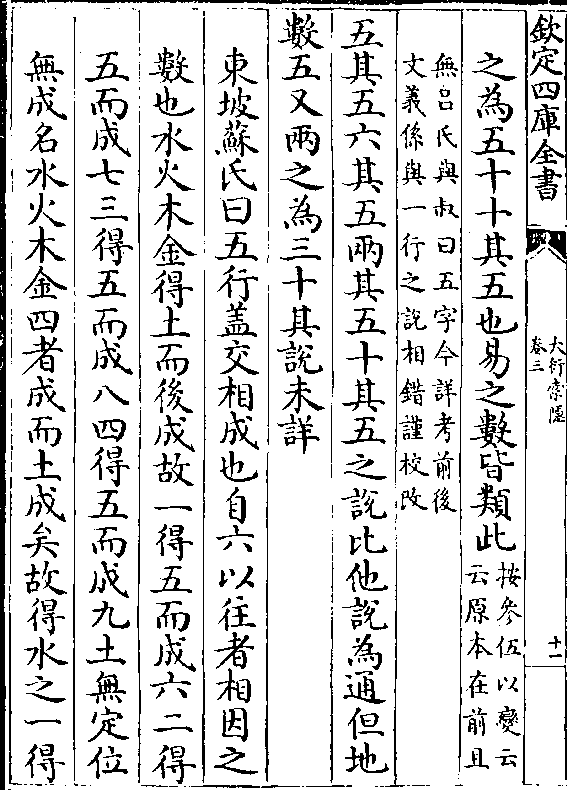 欽定四庫全書
大衍索隱
卷三
十一
之為五十十其五也易之數皆類此按參伍以變云
云原本在前且
無呂氏與叔曰五字今詳考前後
文義係與一行之說相錯謹校改
五其五六其五兩其五十其五之說比他說為通但地
數五又兩之為三十其說未詳
東坡蘇氏曰五行盖交相成也自六以往者相因之
數也水火木金得土而後成故一得五而成六二得
五而成七三得五而成八四得五而成九土無定位
無成名水火木金四者成而土成矣故得水之一得